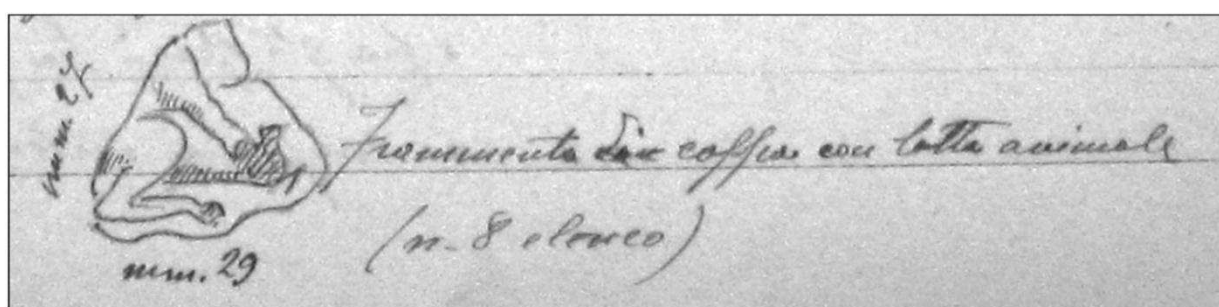 mm. 27
Frammento di coppa con lotta animale
(n. 8 elenco)
mm. 29